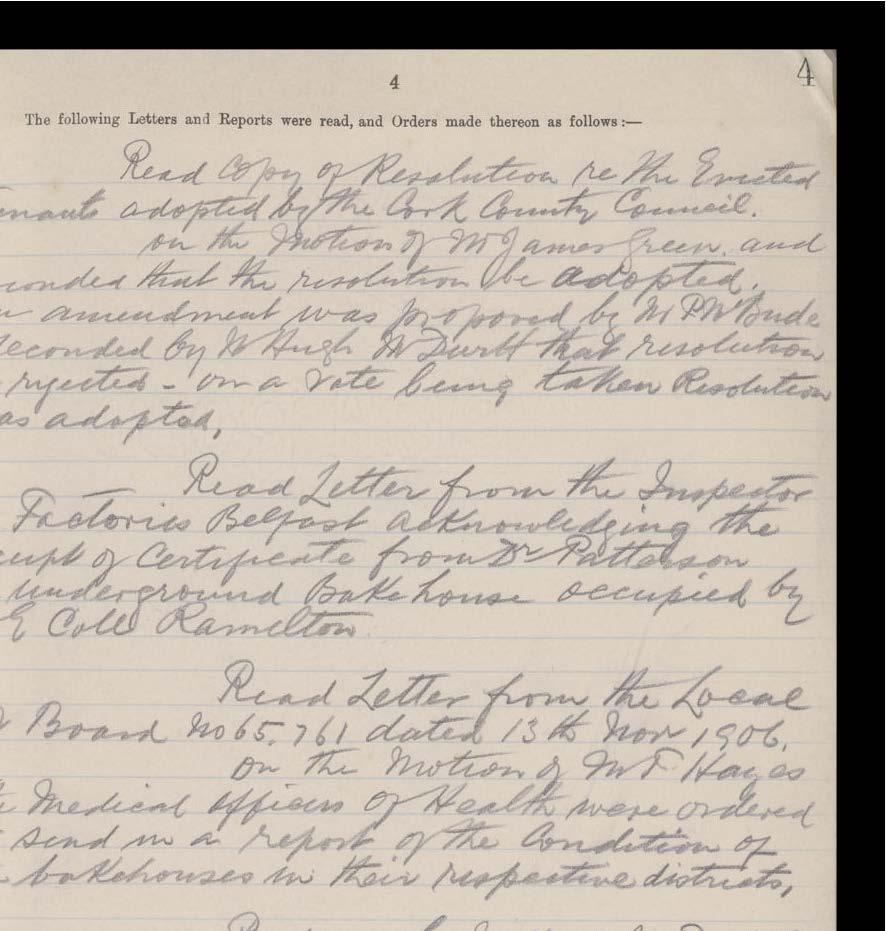 4
4
The following Letters and Reports were read, and Orders made thereon as follows :—
Read Copy of Resolution re the Evicted
enants adopted by the Cork County Council.
on the Motion of Mr James Green and
conded that the resolution be adopted.
amendment was proposed by Mr P
Seconded by Mr Hugh that resolution
rejected - on a vote being taken Resolution
as adopted,
Read Letter from the Inspector
Factories Belfast acknowledging the
ceipt of Certificate from Dr Patterson
underground Bakehouse occupied by
E Coll Ramelton
Read Letter from the Local
Board No 65.761 dated 13th Nov 1906.
on the Motion of Mr F Hayes
Medical Officers of Health were ordered
send in a report of the Condition of
bakehouses in their respective districts,